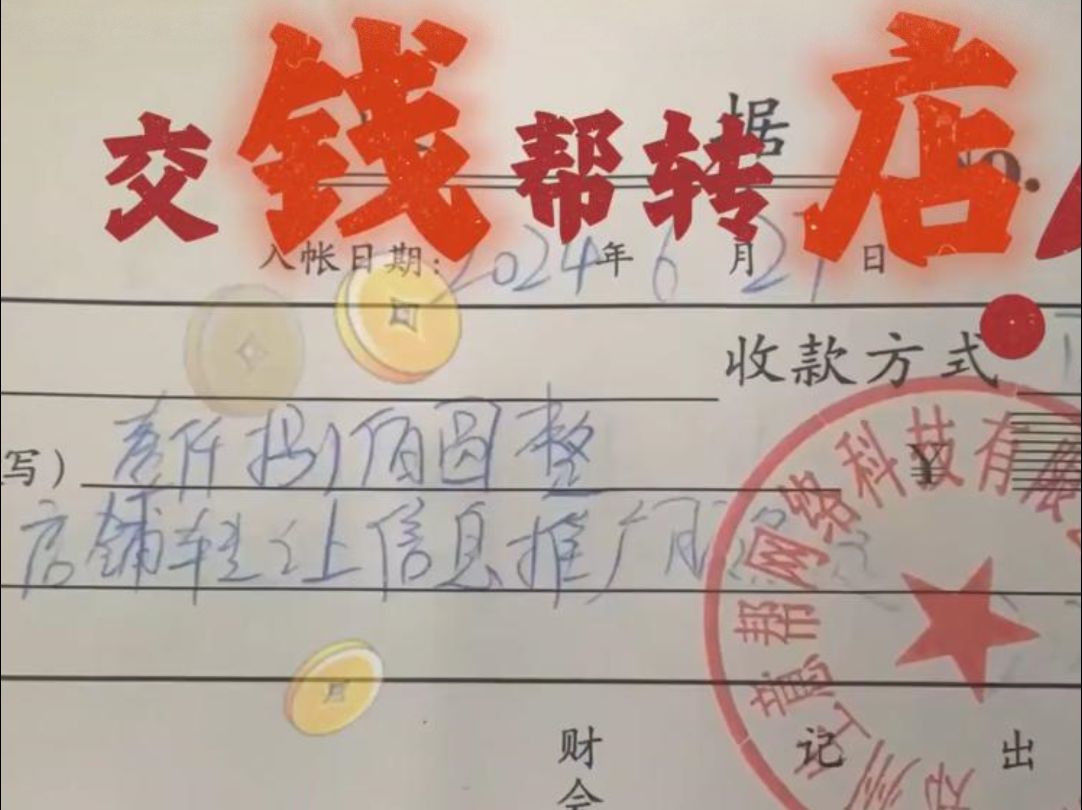 交钱帮转店
据
No.
入帐日期：2024年6月27日
收款方式
写）壹仟捌佰圆整
¥
店铺转让信息推广服务
意帮网络科技有限
财 记 出
会